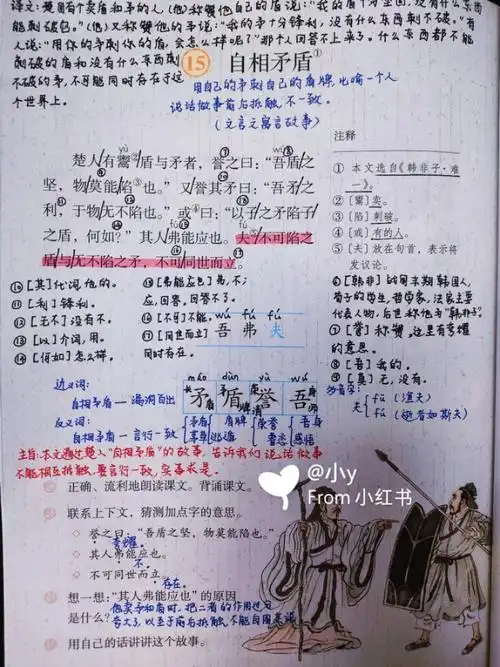 译文：楚国有个卖盾和矛的人，(他)称赞他自己的盾说："我的盾十分坚固，没有什么东西
能刺破它。"(他)又称赞他的矛说："我的矛十分锋利，没有什么东西刺不破。"有
人说："用你的矛刺你的盾，会怎么样呢？"那个人回答不上来了。什么东西都不能
刺破的盾和没有什么东西刺
不破的矛，不可能同时存在于这
个世界上。
15 自相矛盾①
用自己的矛刺自己的盾牌，比喻一个人
说话做事前后抵触，不一致。
(文言文寓言故事)
yù wú
楚人有鬻②盾与矛者，誉之曰："吾盾之
坚，物莫能陷③也。"又誉其矛曰："吾矛之
利，于物无不陷也。"或④曰："以子之矛陷子
之盾，何如？"其人弗能应也。夫⑤不可陷之
盾与无不陷之矛，不可同世而立。
注释
① 本文选自《韩非子·难
一》。
②〔鬻〕卖。
③〔陷〕刺破。
④〔或〕有的人。
⑤〔夫〕放在句首，表示将
发议论。
⑥〔韩非〕战国末期韩国人，
荀子的学生，哲学家，法家主要
代表人物，后世称他为"韩非子"。
⑦〔誉〕称赞，这里有夸耀
的意思。
⑧〔吾〕我的。
⑨〔莫〕无，没有。
⑩〔其〕代词，他的。
⑪〔利〕锋利。
⑫〔无不〕没有不。
⑬〔以〕介词，用。
⑭〔何如〕怎么样。
⑮〔弗能应也〕弗，不；
应，回答。回答不了。
⑯〔不可〕不可能。
⑰〔同世而立〕
同时存在。
wú fú fú
吾 弗 夫
máo dùn yù wú
矛 盾 誉 吾
近义词：
自相矛盾——漏洞百出
反义词：
自相矛盾——言行一致
矛盾
盾牌
荣誉
吾身
多音字：
夫 fū (渔夫)
fú (逝者如斯夫)
主旨：本文通过楚人"自相矛盾"的故事，告诉我们说话做事
不能相互抵触，要言行一致，实事求是。
正确、流利地朗读课文。背诵课文。
联系上下文，猜测加点字的意思。
◇ 誉之曰："吾盾之坚，物莫能陷也。"
夸耀。
◇ 其人弗能应也。
不。
◇ 不可同世而立。
存在。
想一想："其人弗能应也"的原因
是什么？
他卖矛和盾时，把二者的作用过分
夸大了，以至于前后抵触，不能自圆其说
用自己的话讲讲这个故事。
@小y
From 小红书